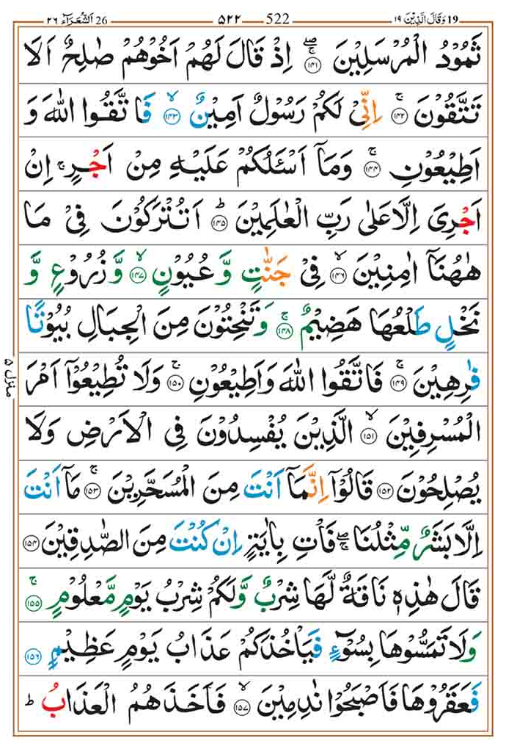 ١٩ وَقَالَ الَّذِیْنَ 19 ٥٢٢ 522 اَلشُّعَرَآء ٢٦ 26
ثَمُوْدُ الْمُرْسَلِیْنَ ۚۖ‏ ﴿۱۴۱﴾ اِذْ قَالَ لَهُمْ اَخُوْهُمْ صٰلِحٌ اَلَا
تَتَّقُوْنَ ۚ‏ ﴿۱۴۲﴾ اِنِّیْ لَكُمْ رَسُوْلٌ اَمِیْنٌ ۙ‏ ﴿۱۴۳﴾ فَاتَّقُوا اللّٰهَ وَ
اَطِیْعُوْنِ ۚ‏ ﴿۱۴۴﴾ وَمَاۤ اَسْـَٔلُكُمْ عَلَیْهِ مِنْ اَجْرٍ ۚ اِنْ
اَجْرِیَ اِلَّا عَلٰی رَبِّ الْعٰلَمِیْنَ ؕ‏ ﴿۱۴۵﴾ اَتُتْرَكُوْنَ فِیْ مَا
هٰهُنَاۤ اٰمِنِیْنَ ۙ‏ ﴿۱۴۶﴾ فِیْ جَنّٰتٍ وَّ عُیُوْنٍ ۙ‏ ﴿۱۴۷﴾ وَّ زُرُوْعٍ وَّ
نَخْلٍ طَلْعُهَا هَضِیْمٌ ۚ‏ ﴿۱۴۸﴾ وَتَنْحِتُوْنَ مِنَ الْجِبَالِ بُیُوْتًا
فٰرِهِیْنَ ۚ‏ ﴿۱۴۹﴾ فَاتَّقُوا اللّٰهَ وَاَطِیْعُوْنِ ۚ‏ ﴿۱۵۰﴾ وَلَا تُطِیْعُوْۤا اَمْرَ
الْمُسْرِفِیْنَ ۙ‏ ﴿۱۵۱﴾ الَّذِیْنَ یُفْسِدُوْنَ فِی الْاَرْضِ وَلَا
یُصْلِحُوْنَ ﴿۱۵۲﴾ قَالُوْۤا اِنَّمَاۤ اَنْتَ مِنَ الْمُسَحَّرِیْنَ ۚ‏ ﴿۱۵۳﴾ مَاۤ اَنْتَ
اِلَّا بَشَرٌ مِّثْلُنَا ۖۚ فَاْتِ بِاٰیَةٍ اِنْ كُنْتَ مِنَ الصّٰدِقِیْنَ ﴿۱۵۴﴾
قَالَ هٰذِهٖ نَاقَةٌ لَّهَا شِرْبٌ وَّلَكُمْ شِرْبُ یَوْمٍ مَّعْلُوْمٍ ۚ‏ ﴿۱۵۵﴾
وَلَا تَمَسُّوْهَا بِسُوْٓءٍ فَیَاْخُذَكُمْ عَذَابُ یَوْمٍ عَظِیْمٍ ﴿۱۵۶﴾
فَعَقَرُوْهَا فَاَصْبَحُوْا نٰدِمِیْنَ ۙ‏ ﴿۱۵۷﴾ فَاَخَذَهُمُ الْعَذَابُ ؕ
منزل ۵